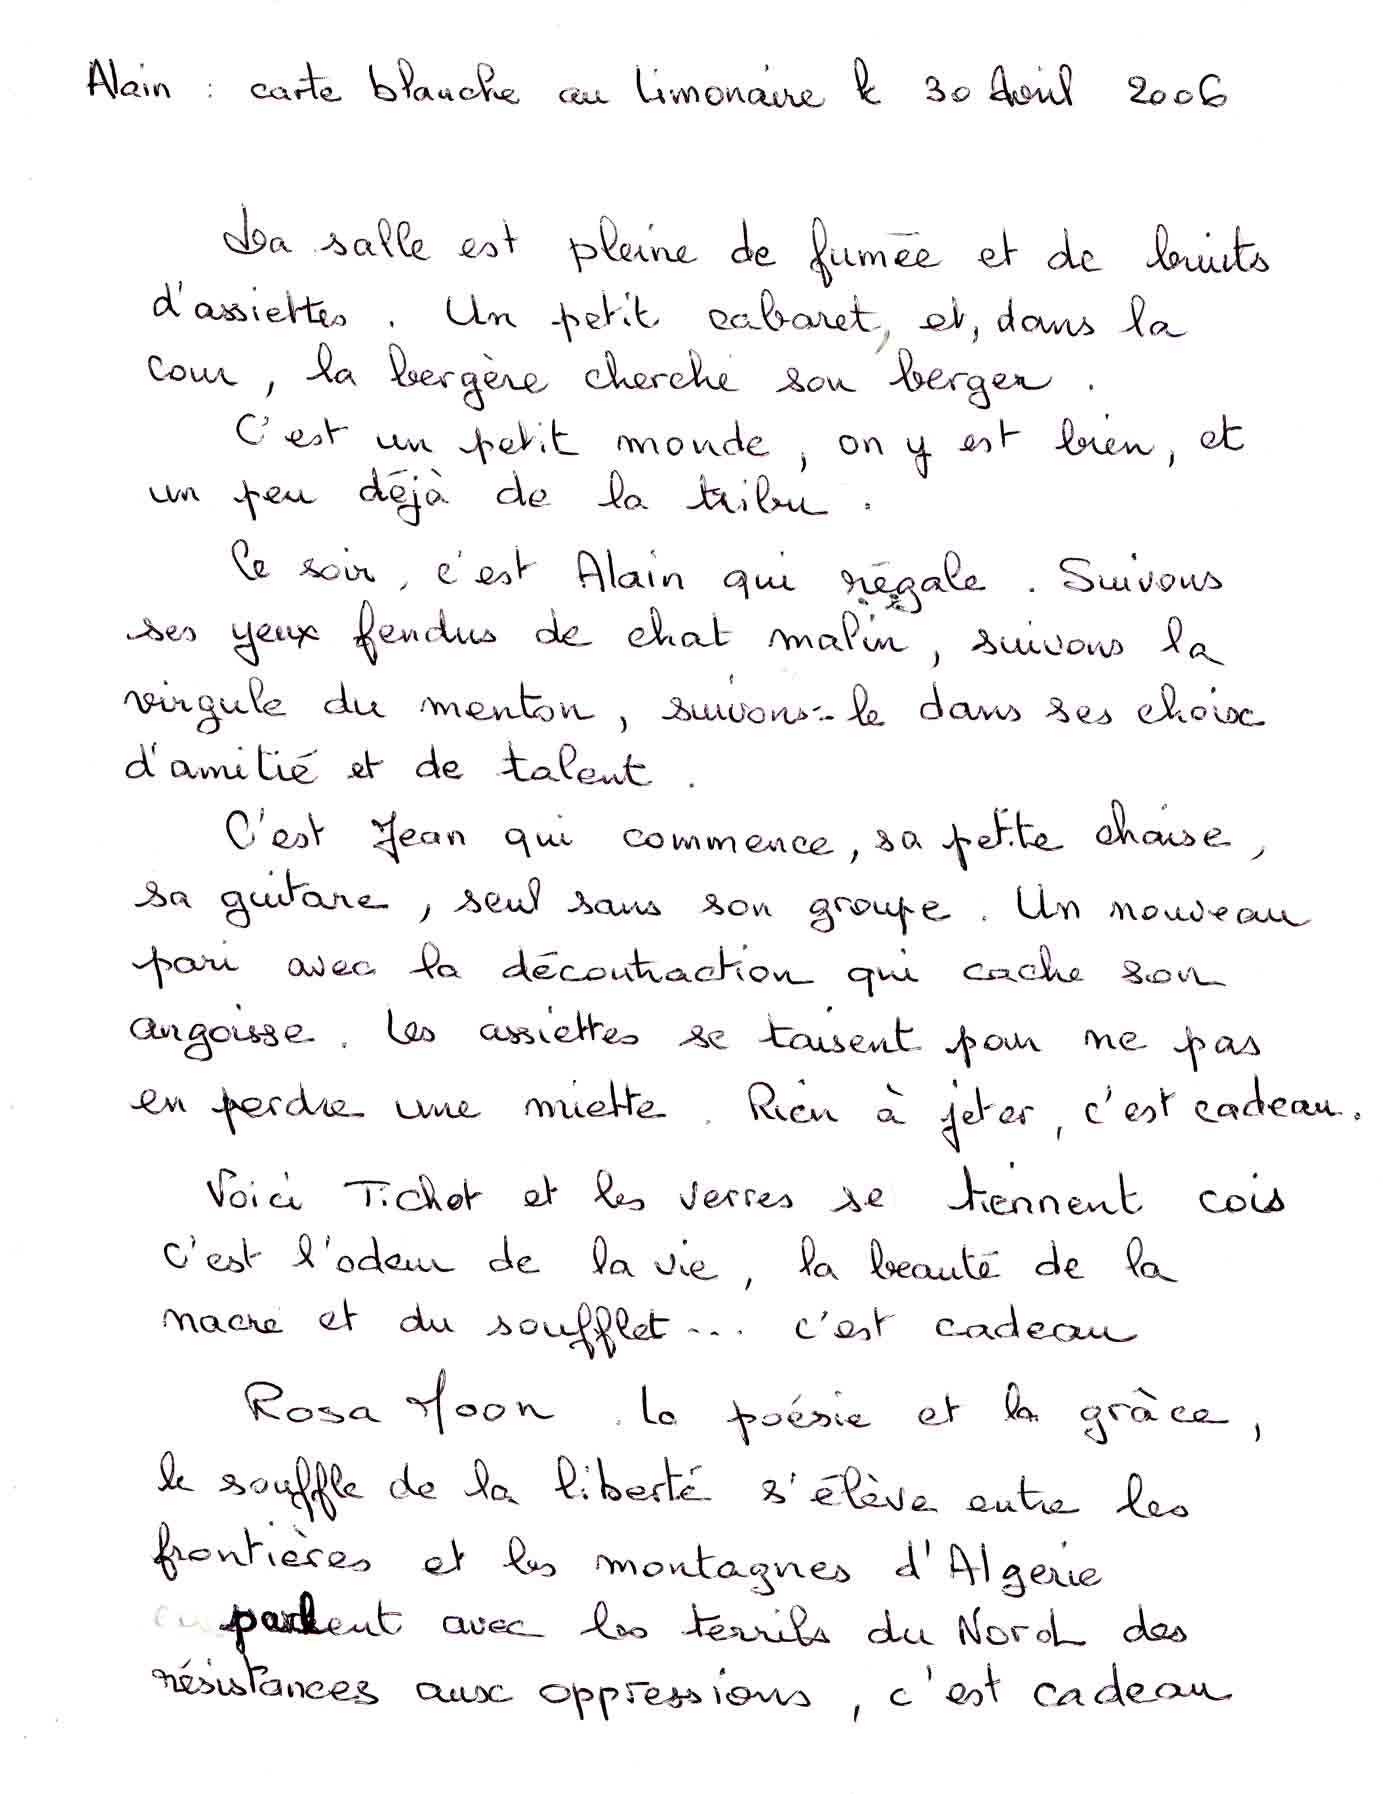 Alain : carte blanche au Limonaire le 30 Avril 2006
La salle est pleine de fumée et de bruits
d'assiettes. Un petit cabaret, et, dans la
cour, la bergère cherche son berger.
C'est un petit monde, on y est bien, et
un peu déjà de la tribu.
Ce soir, c'est Alain qui régale. Suivons
ses yeux fendus de chat malin, suivons la
virgule du menton, suivons-le dans ses choix
d'amitié et de talent.
C'est Jean qui commence, sa petite chaise,
sa guitare, seul sans son groupe. Un nouveau
pari avec la décontraction qui cache son
angoisse. Les assiettes se taisent pour ne pas
en perdre une miette. Rien à jeter, c'est cadeau.
Voici Tichot et les verres se tiennent cois
c'est l'odeur de la vie, la beauté de la
nacre et du soufflet... c'est cadeau
Rosa Moon. la poésie et la grâce,
le souffle de la liberté s'élève entre les
frontières et les montagnes d'Algerie
parlent avec les terrils du Nord des
résistances aux oppressions, c'est cadeau